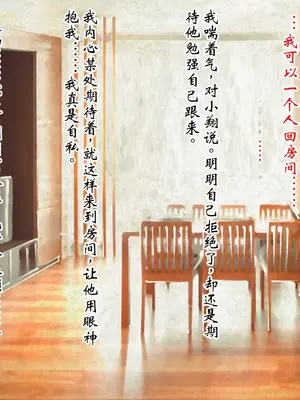 …我可以一个人回房间……
……
我喘着气，对小翔说。明明自己拒绝了，却还是期
待他勉强自己跟来。
我内心某处期待着，就这样来到房间，让他用眼神
抱我……。我真是自私。